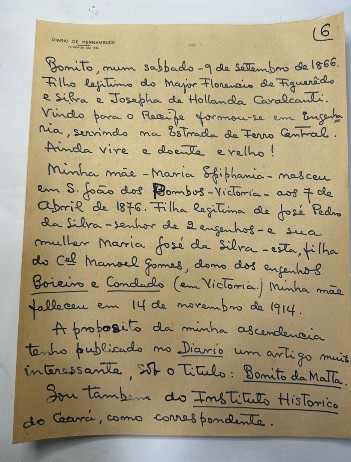 (6
DIARIO DE PERNAMBUCO
Bonito, num sabbado - 9 de setembro de 1866.
Filho legitimo do Major Florencio de Figuerêdo
e Silva e Josepha de Hollanda Cavalcanti.
Vindo para o Recife formou-se em Engenha
ria, servindo na Estrada de Ferro Central.
Ainda vive e doente e velho!
Minha mãe - Maria Epiphania - nasceu
em S. João dos Pombos - Victoria - aos 7 de
Abril de 1876. Filha legitima de José Pedro
da Silva - senhor de 2 engenhos - e sua
mulher Maria José da Silva - esta, filha
do Cel Manoel Gomes, dono dos engenhos
Boieiro e Condado (em Victoria) Minha mãe
falleceu em 14 de novembro de 1914.
A proposito da minha ascendencia
tenho publicado no Diario um artigo muito
interessante, sob o titulo: Bonito da Matta.
Sou tambem do Instituto Historico
do Ceará, como correspondente.